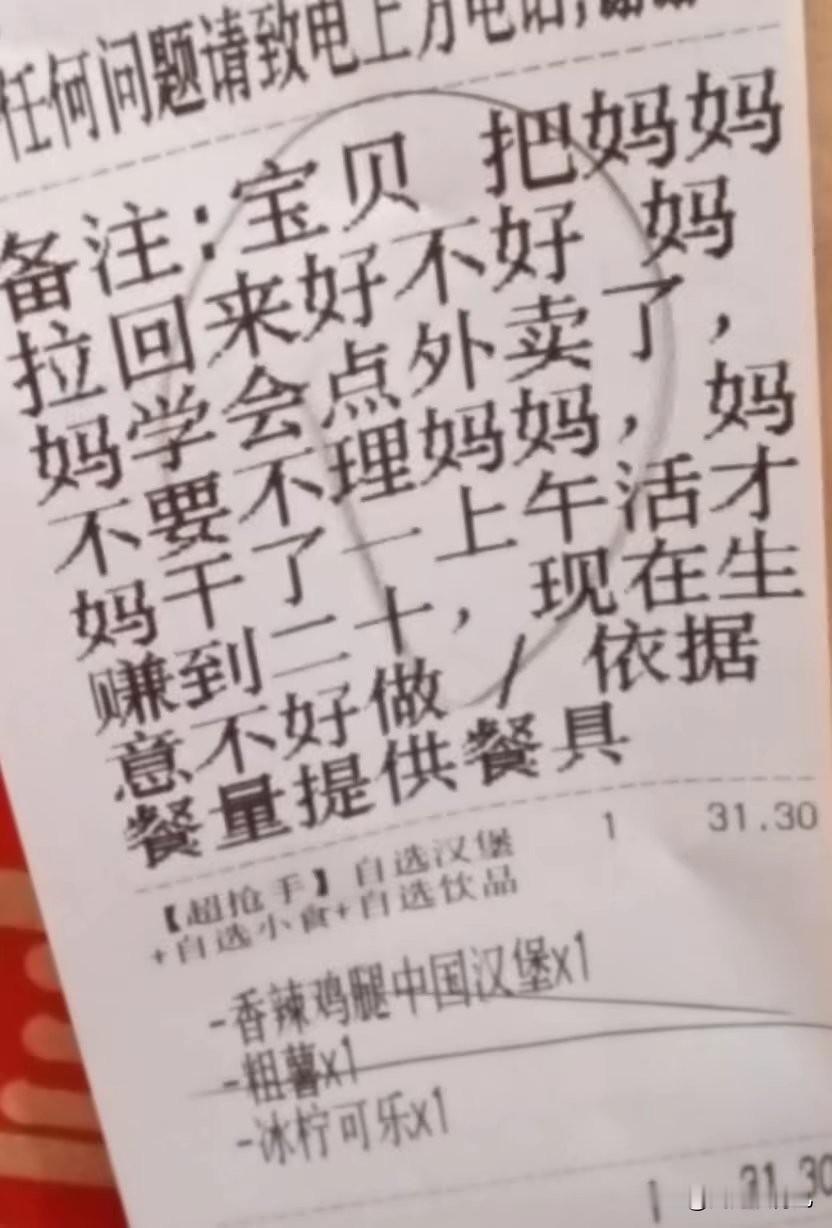 任何问题请致电上方电话,谢谢
备注:宝贝 把妈妈
拉回来好不好 妈
妈学会点外卖了,
不要不理妈妈, 妈
妈干了一上午活才
赚到二十, 现在生
意不好做 / 依据
餐量提供餐具
【超抢手】自选汉堡 1 31.30
+自选小食+自选饮品
-香辣鸡腿中国汉堡x1
-粗薯x1
-冰柠可乐x1
1 31.30